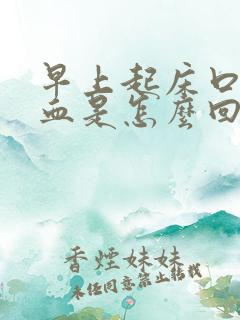 早上起床口
血是怎麼回
香煙妹妹
未經同意禁止轉載